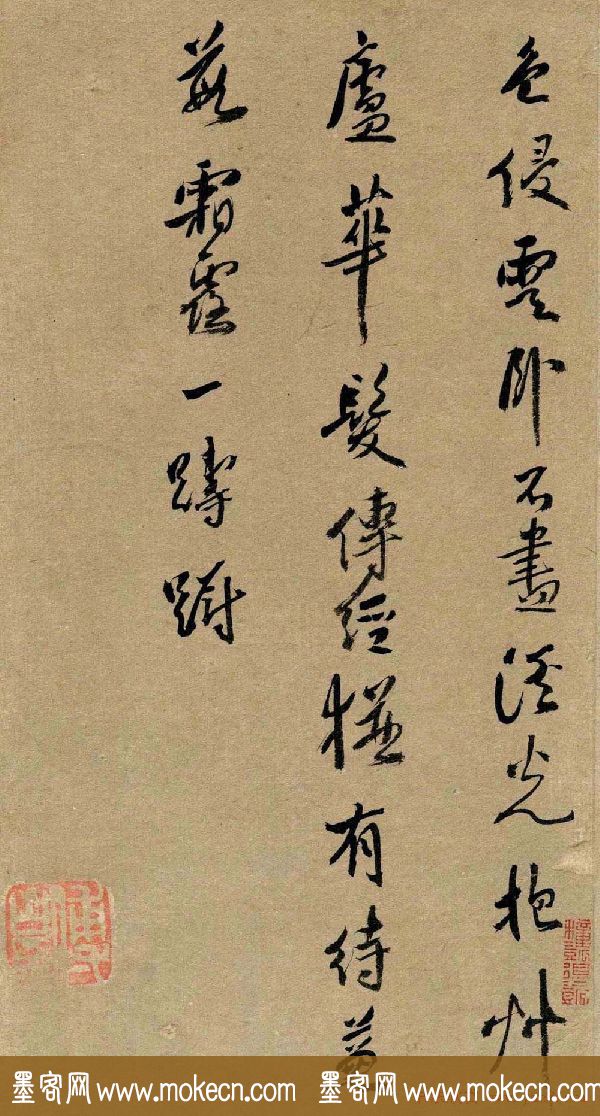 色侵雲卧不盡溪光抱艸
廬華髮傳經有待蒹
葭霜露一躊蹰
墨客网www.mokecn.com 墨客网www.mokecn.com